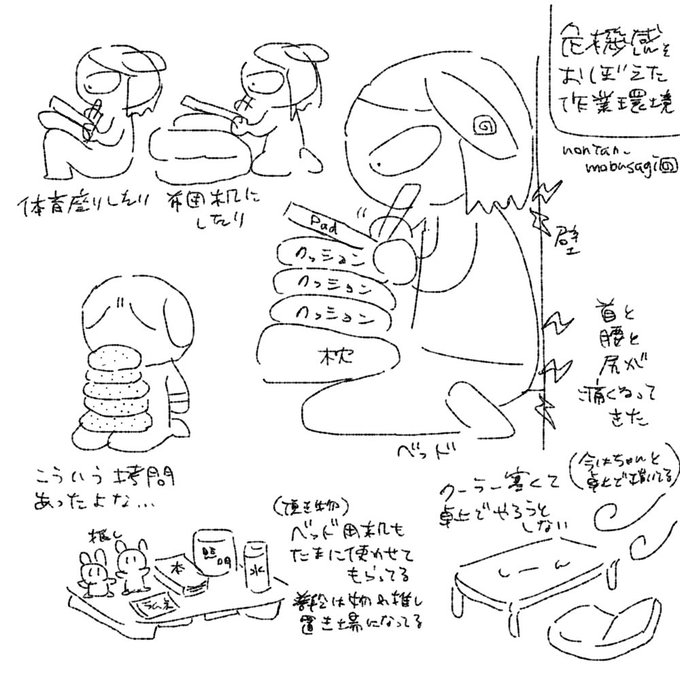 危機感を
おぼえた
作業環境
nontan_
mobusagi回
体育座りしたり
布団机に
したり
Pad
クッション
クッション
クッション
枕
壁
首と
腰と
尻が
痛くなって
きた
ベッド
こういう拷問
あったよな…
(頂き物)
ベッド用机も
たまに使わせて
もらってる
普段は物の推し
置き場になってる
推し
本
照明
水
クーラー寒くて
卓上でやろうと
しない
(今はちゃんと
卓上で描いてる)
しーん